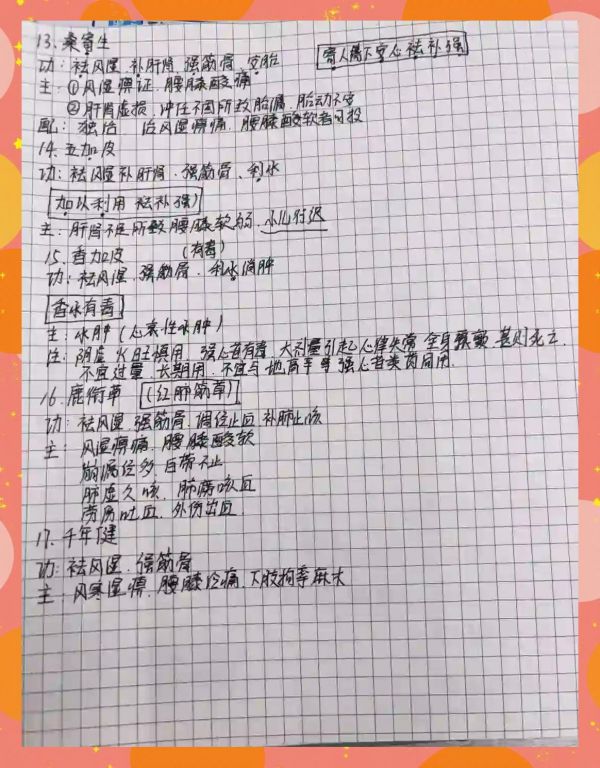 13、桑寄生
寄人篱下安心祛补强
功：祛风湿、补肝肾、强筋骨、安胎
主：①风湿痹证、腰膝酸痛
②肝肾虚损、冲任不固所致胎漏，胎动不安
配：独活 治风湿痹痛，腰膝酸软者可投
14、五加皮
功：祛风湿补肝肾、强筋骨、利水
加以利用 祛补强
主：肝肾不足所致腰膝软弱、小儿行迟
15、香加皮 （有毒）
功：祛风湿、强筋骨、利水消肿
香水有毒
主：水肿（心衰性水肿）
注：阴虚火旺慎用，强心者有毒，大剂量引起心律失常 全身震颤 甚则死亡，
不宜过量、长期用，不宜与地高辛等强心苷类药同用
16、鹿衔草 （红肺筋草）
功：祛风湿、强筋骨、调经止血、补肺止咳
主：风湿痹痛、腰膝酸软
崩漏经多、白带不止
肺虚久咳、肺痨咳血
劳伤吐血、外伤出血
17、千年健
功：祛风湿、强筋骨
主：风寒湿痹、腰膝冷痛、下肢拘挛麻木